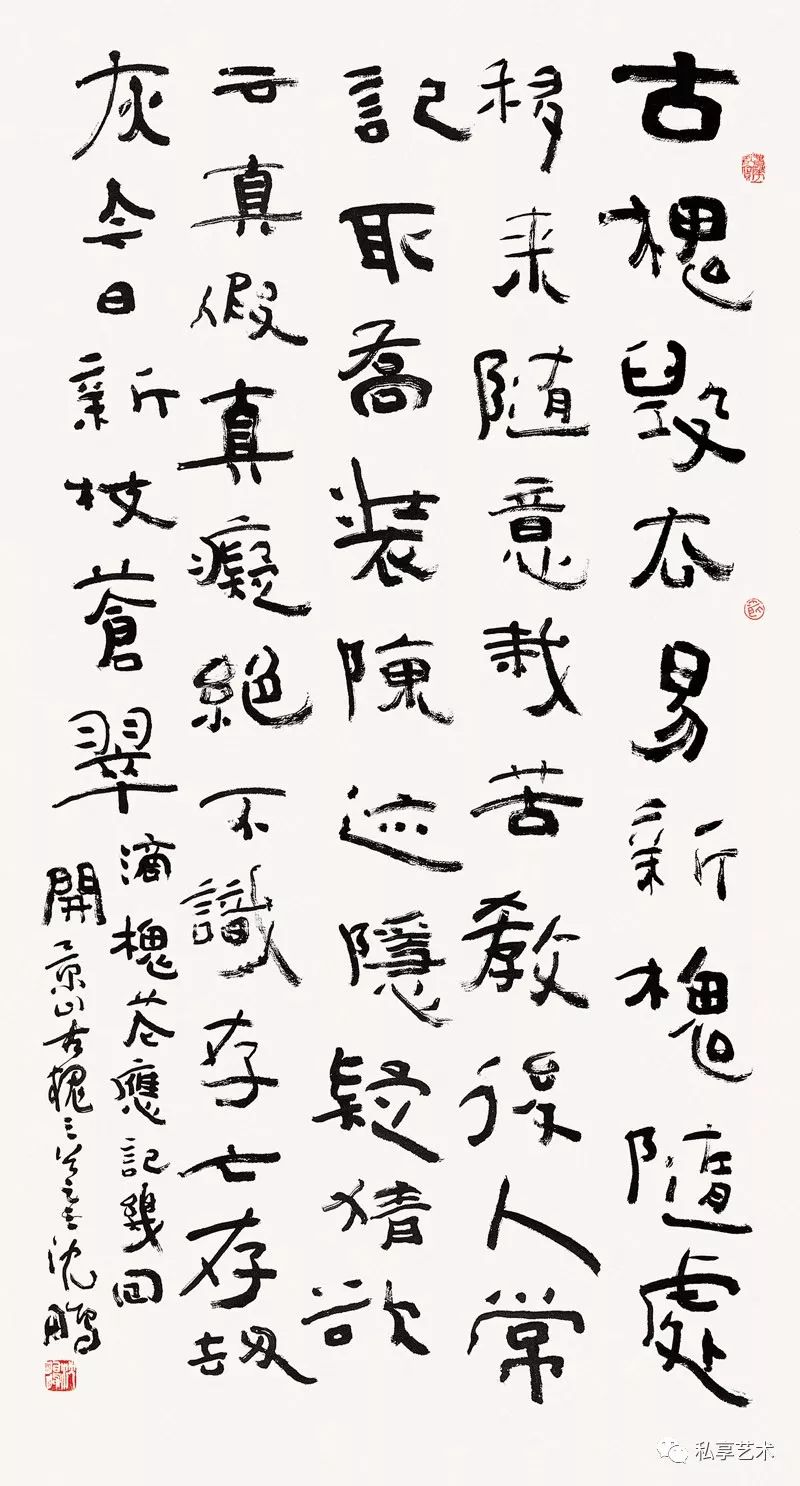 古槐毀去易新槐隨處
移来随意栽苦教後人常
記取喬裝陳迹隱疑猜欲
云真假真癡絕不識存亡存劫
灰今日新枝蒼翠滴槐花應記幾回
開 景山古槐三首之 沈鵬
私享艺术